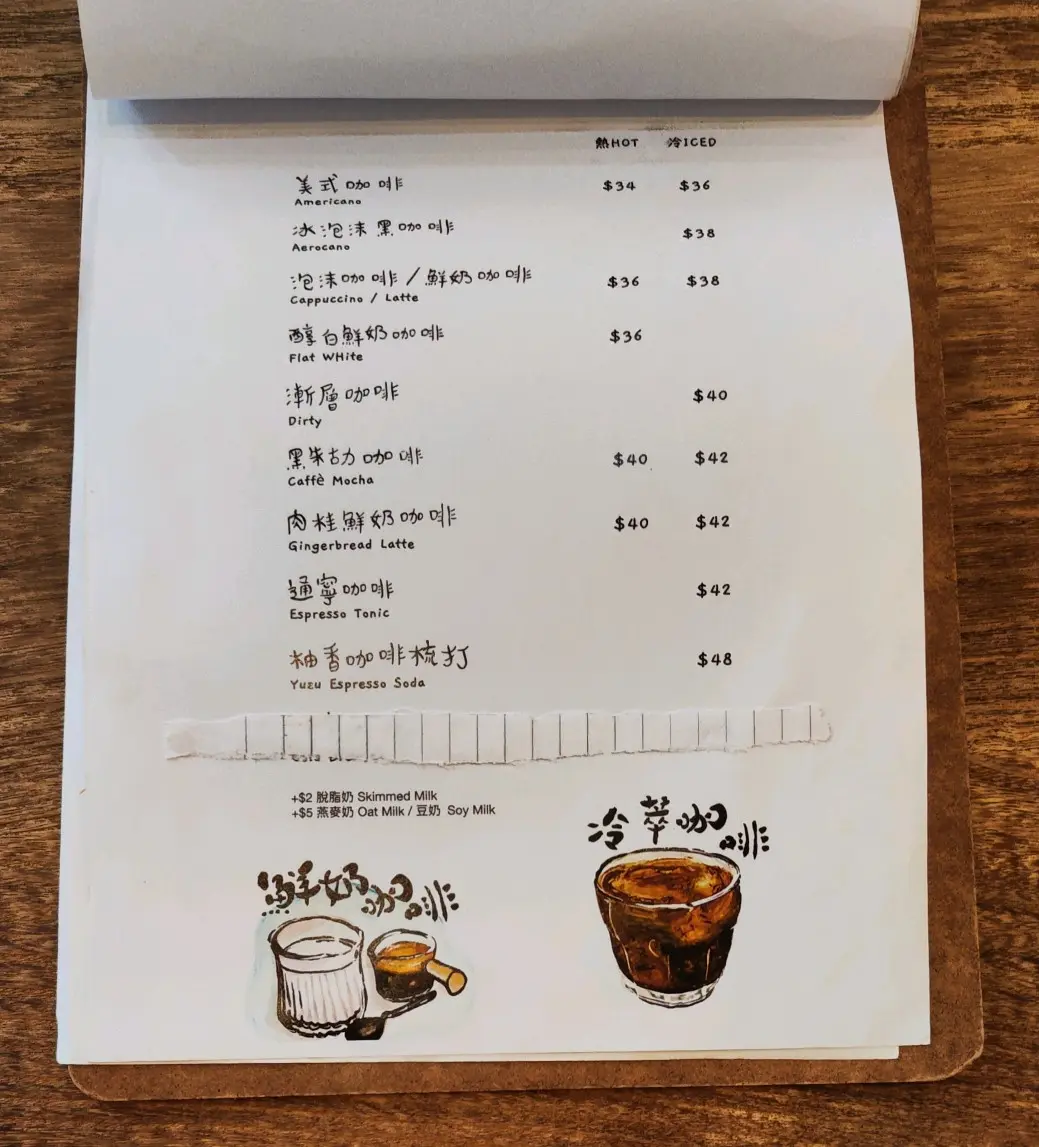 熱HOT 冷ICED
美式咖啡 $34 $36
Americano
冰泡沫黑咖啡 $38
Aerocano
泡沫咖啡/鮮奶咖啡 $36 $38
Cappuccino / Latte
醇白鮮奶咖啡 $36
Flat WHite
漸層咖啡 $40
Dirty
黑朱古力咖啡 $40 $42
Caffè Mocha
肉桂鮮奶咖啡 $40 $42
Gingerbread Latte
通寧咖啡 $42
Espresso Tonic
柚香咖啡梳打 $48
Yuzu Espresso Soda
+$2 脫脂奶 Skimmed Milk
+$5 燕麥奶 Oat Milk / 豆奶 Soy Milk
冷萃咖啡
鮮奶咖啡